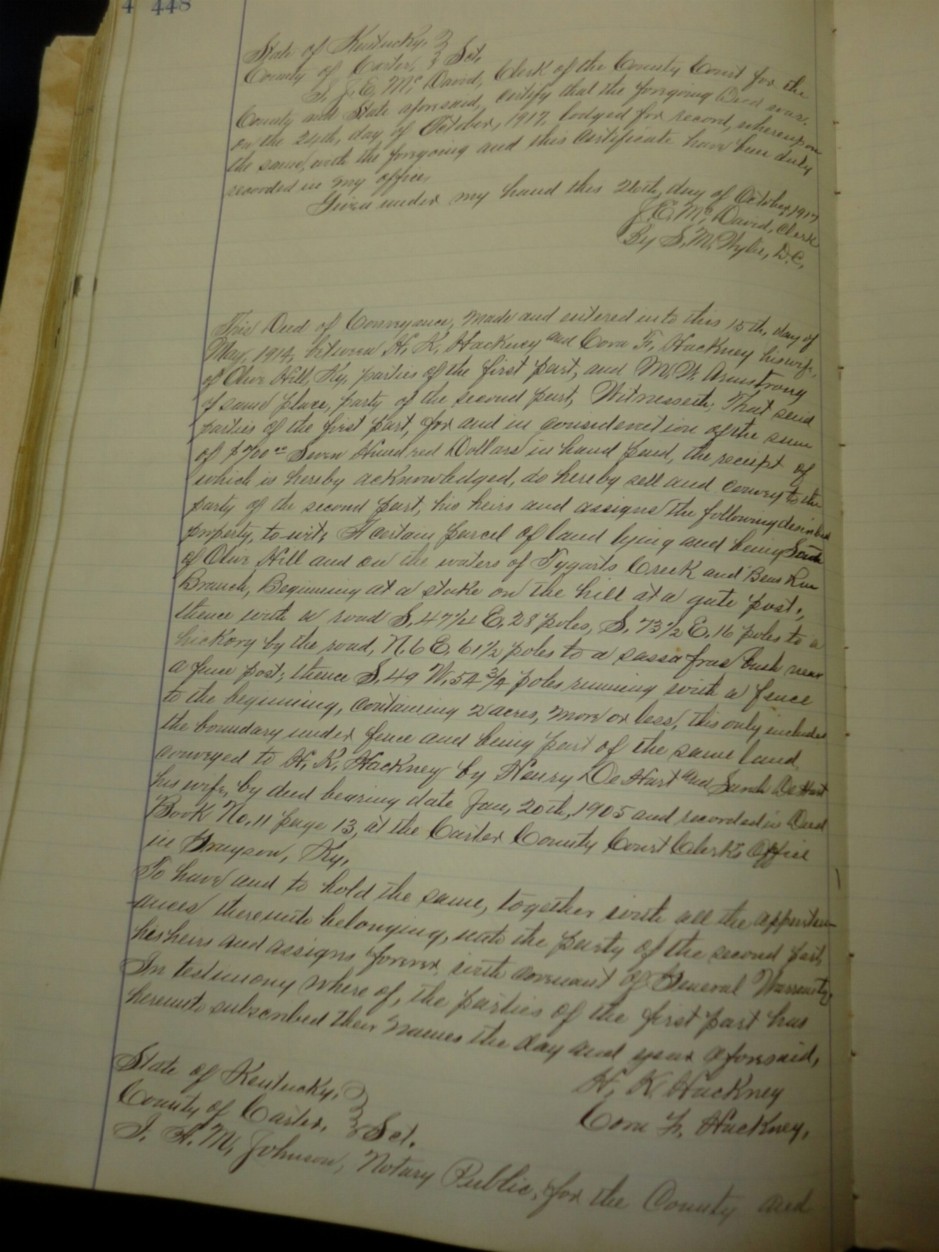 4 448
State of Kentucky, }
County of Carter, } Sct,
I, J. E. McDavid, Clerk of the County Court for the
County and State aforesaid, certify that the forgoing Deed was
on the 24th, day of October, 1917, lodged for record, whereupon
the same, with the forgoing and this Certificate have been duly
recorded in my office,
Given under my hand this 26th, day of October, 1917
J. E. McDavid, Clerk
By S. M. D.C,
This Deed of Conveyance, made and entered into this 15th, day of
May, 1914, between H, K, Hackney and Cora F, Hackney his wife,
of Olive Hill, Ky, parties of the first part, and M. W. Armstrong
of same place, party of the second part, Witnesseth; That said
parties of the first part, for and in consideration of the sum
of $700 00 Seven Hundred Dollars in hand paid, the receipt of
which is hereby acknowledged, do hereby sell and convey to the
party of the second part, his heirs and assigns the following described
property, to-wit; A certain parcel of land lying and being South
of Olive Hill and on the waters of Tygarts Creek and Bens Run
Branch, Beginning at a stake on the hill at a gate post,
thence with a road S, 47 1/2 E, 28 poles, S, 73 1/2 E, 16 poles to a
hickory by the road, N. 6 E, 61 1/2 poles to a sassafras bush near
a fence post; thence S, 49 W, 54 3/4 poles running with a fence
to the beginning, containing 2 acres, more or less, this only includes
the boundary under fence and being part of the same land
conveyed to H, K, Hackney by Henry DeHart and Sarah DeHart
his wife, by deed bearing date Jan, 20th, 1905 and recorded in Deed
Book No, 11 page 13, at the Carter County Court Clerk's Office
in Grayson, Ky,
To have and to hold the same, together with all the appurten-
ances thereunto belonging, unto the party of the second part,
his heirs and assigns forever with covenant of General Warranty,
In testimony where of, the parties of the first part has
hereunto subscribed their names the day and year aforesaid,
H. K Hackney
Cora F, Hackney,
State of Kentucky, }
County of Carter, } Sct.
I, H. M, Johnson, Notary Public, for the County and